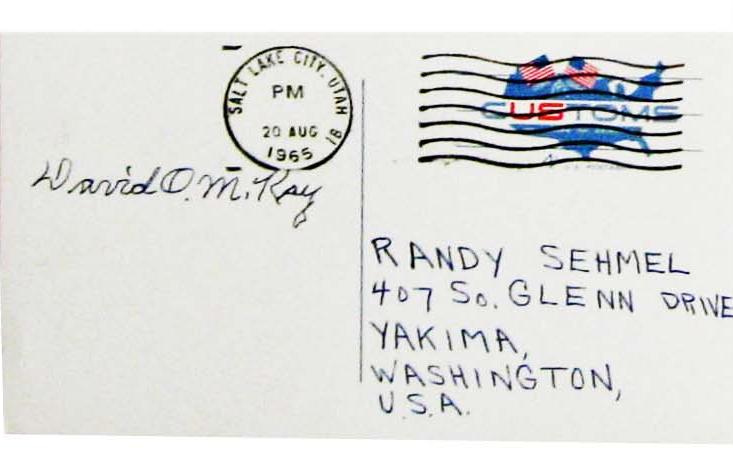 SALT LAKE CITY, UTAH 18
PM
20 AUG
1965
CUSTOMS
David O. McKay
RANDY SEHMEL
407 So. GLENN DRIVE
YAKIMA,
WASHINGTON,
U.S.A.